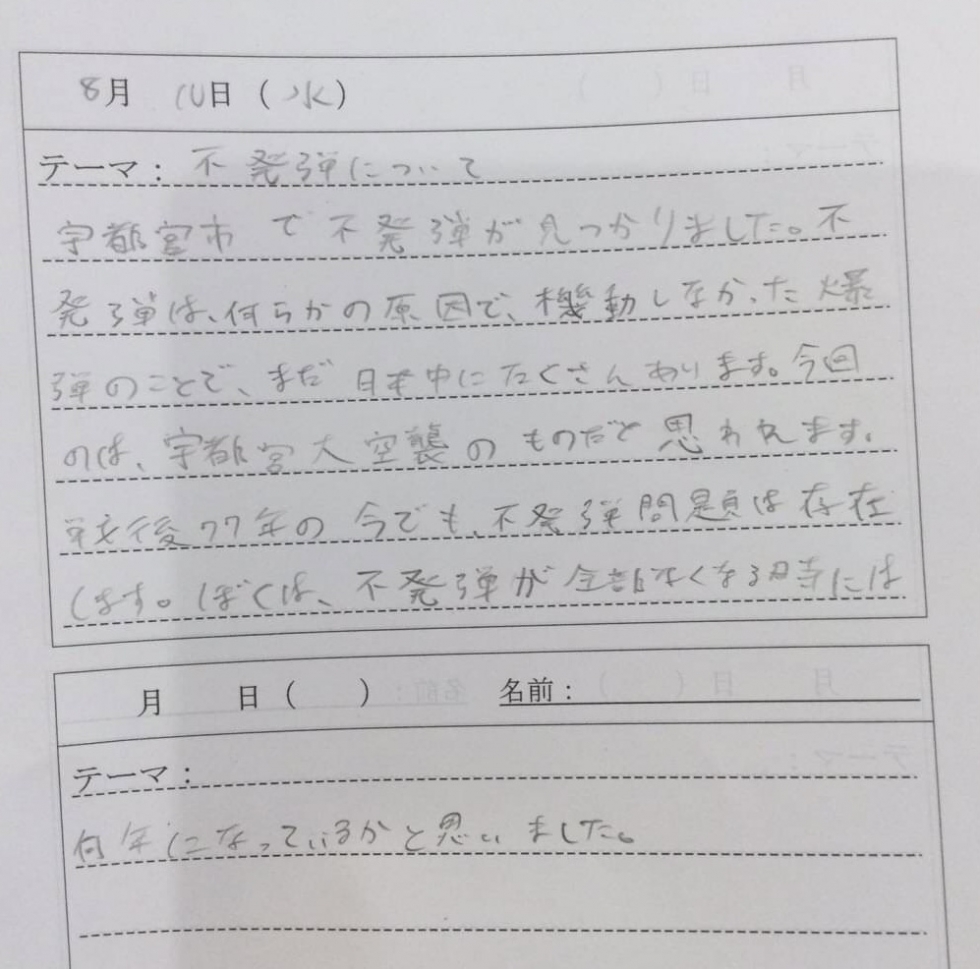 8月 10日（水）
テーマ：不発弾について
宇都宮市で不発弾が見つかりました。不
発弾は、何らかの原因で、機動しなかった爆
弾のことで、まだ日本中にたくさんあります。今回
のは、宇都宮大空襲のものだと思われます。
戦後77年の今でも、不発弾問題は存在
します。ぼくは、不発弾が全部なくなる時には
月 日（ ） 名前：
テーマ：
何年になっているかと思いました。